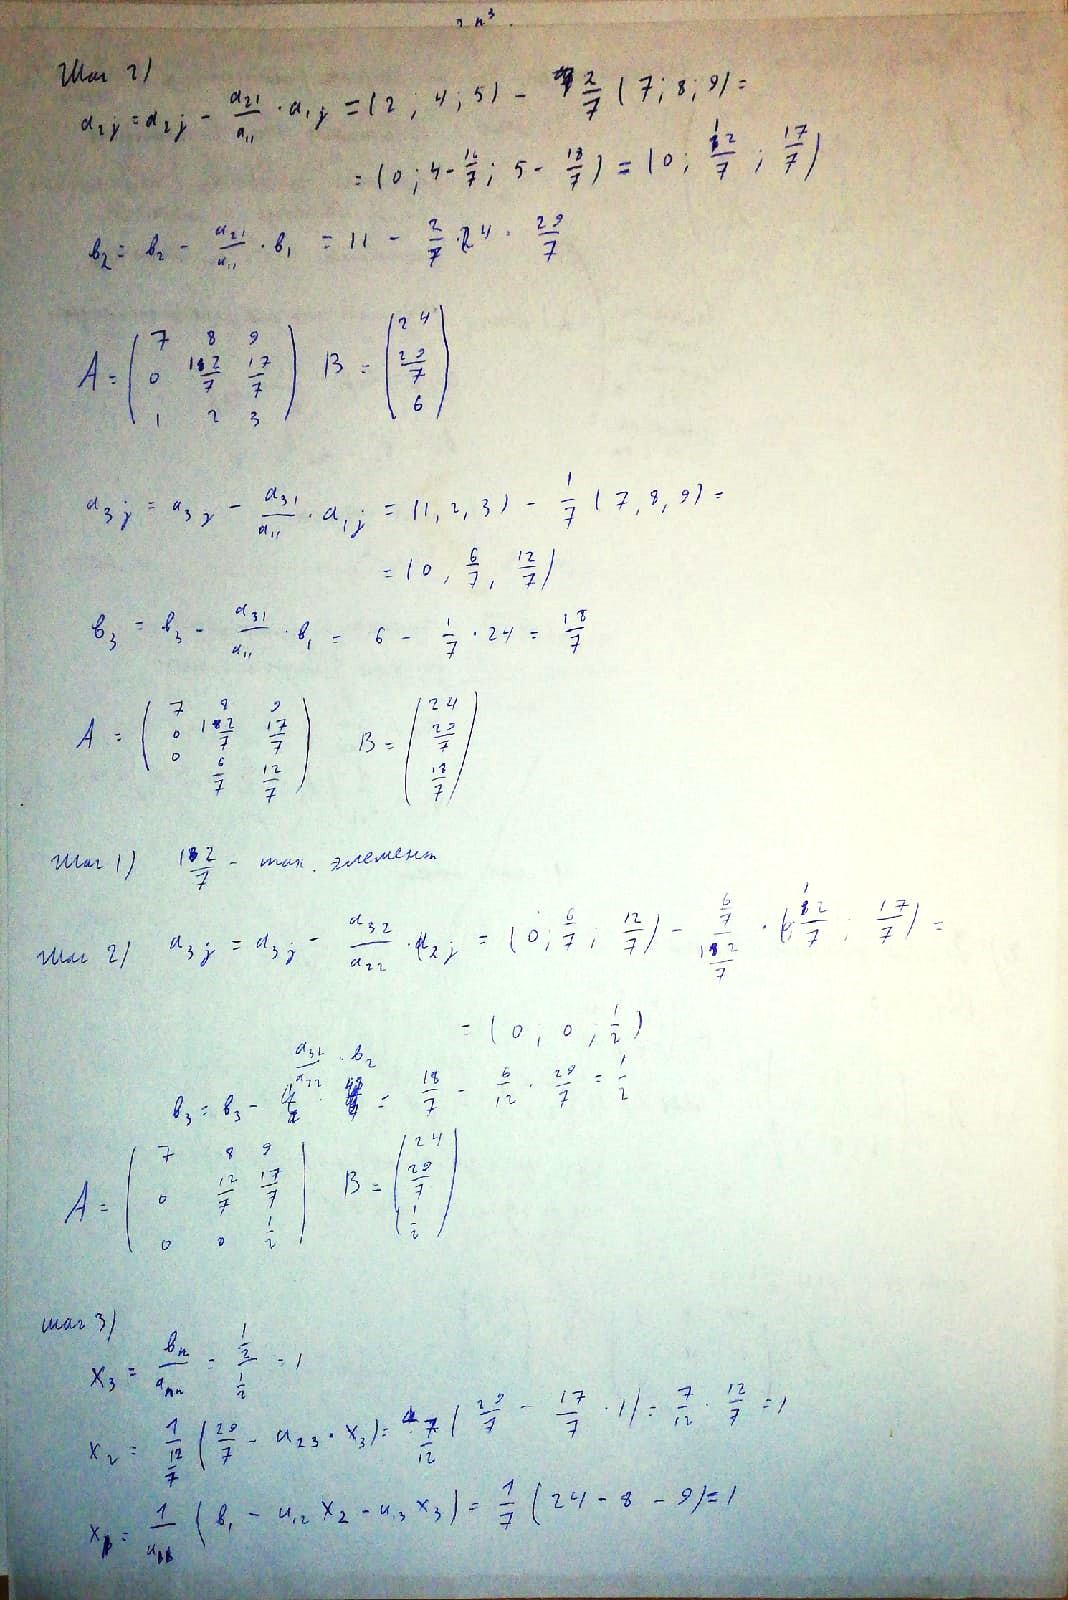 Шаг 2)
a₂ⱼ = a₂ⱼ - a₂₁/a₁₁ · a₁ⱼ = (2, 4; 5) - 2/7 (7; 8; 9) =
= (0; 4 - 16/7; 5 - 18/7) = (0; 12/7; 17/7)
b₂ = b₂ - a₂₁/a₁₁ · b₁ = 11 - 2/7 · 24 · 29/7
7 8 9 24
A = ( 0 12/7 17/7 ) B = ( 29/7 )
1 2 3 6
a₃ⱼ = a₃ⱼ - a₃₁/a₁₁ · a₁ⱼ = (1, 2, 3) - 1/7 (7, 8, 9) =
= (0, 6/7, 12/7)
b₃ = b₃ - a₃₁/a₁₁ · b₁ = 6 - 1/7 · 24 = 18/7
7 8 9 24
A = ( 0 12/7 17/7 ) B = ( 29/7 )
0 6/7 12/7 18/7
Шаг 1) 12/7 - элемент
Шаг 2) a₃ⱼ = a₃ⱼ - a₃₂/a₂₂ · a₂ⱼ = (0; 6/7; 12/7) - 6/7 / 12/7 · (12/7; 17/7) =
= (0; 0; 1/2)
b₃ = b₃ - a₃₂/a₂₂ · b₂ = 18/7 - 6/12 · 29/7 = 1/2
7 8 9 24
A = ( 0 12/7 17/7 ) B = ( 29/7 )
0 0 1/2 1/2
шаг 3)
x₃ = bₙ/aₙₙ = 1/2 / 1/2 = 1
x₂ = 1/(12/7) (29/7 - a₂₃ · x₃) = 7/12 (29/7 - 17/7 · 1) = 7/12 · 12/7 = 1
x₁ = 1/a₁₁ (b₁ - a₁₂ x₂ - a₁₃ x₃) = 1/7 (24 - 8 - 9) = 1